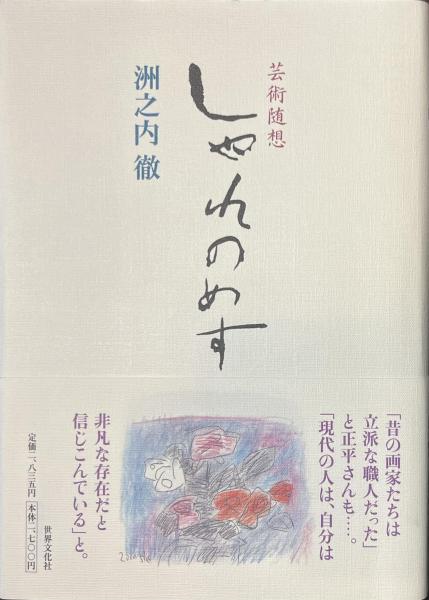 芸術随想
しゃれのめす
洲之内 徹
「昔の画家たちは
立派な職人だった」
と正平さんも……。
「現代の人は、自分は
非凡な存在だと
信じこんでいる」と。
定価二、八三五円 本体二、七〇〇円
世界文化社